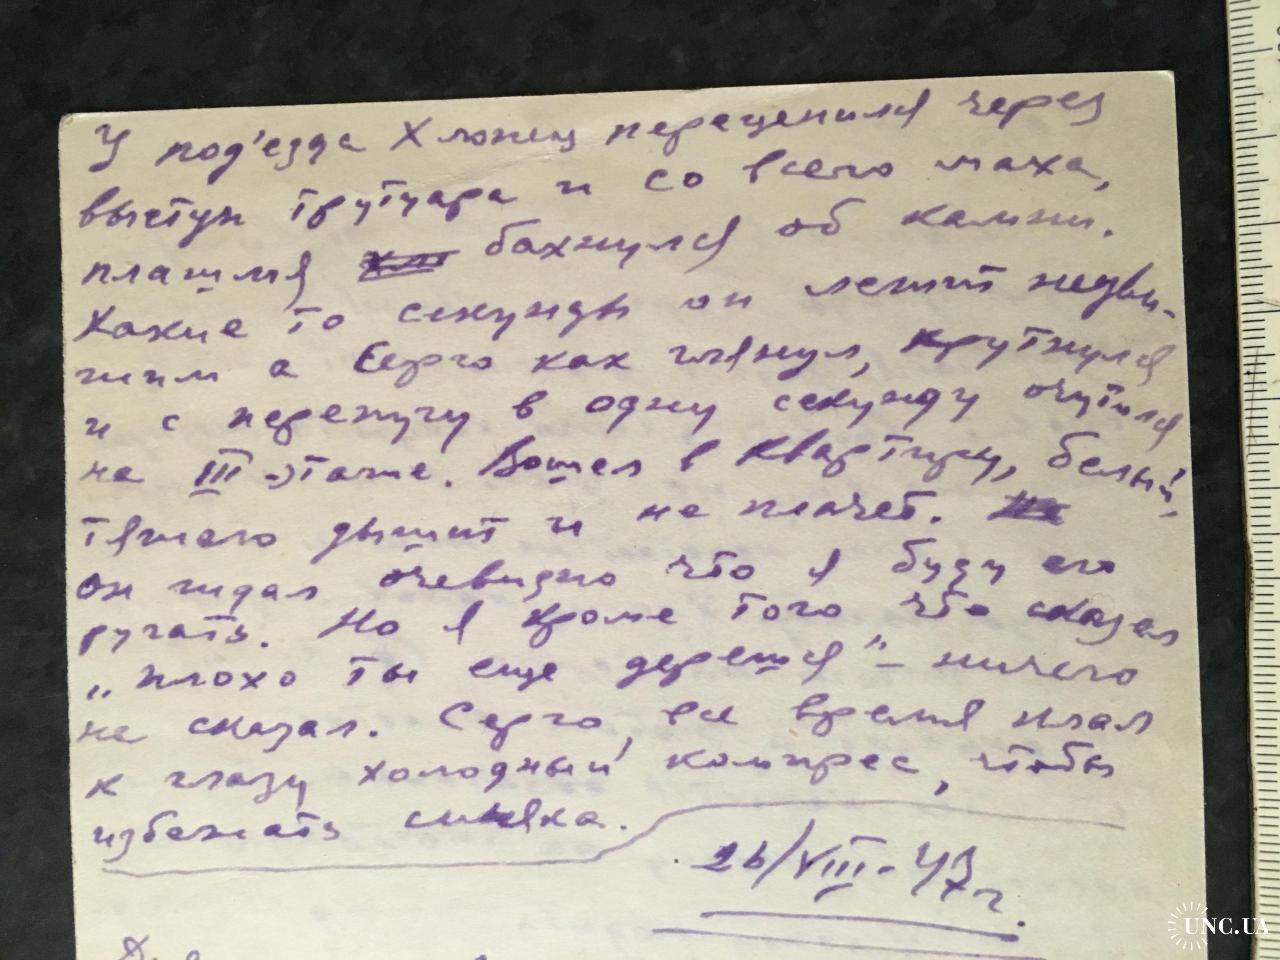 У под'езда Хлопец перецепился через
выступ тротуара и со всего маха,
плашмя бахнулся об камни.
Какие то секунды он лежит недви-
жим а Серго как глянул, крутнулся
и с перепугу в одну секунду очутился
на III этаже. Вошел в квартиру, белый,
тяжело дышит и не плачет.
он ждал очевидно что я буду его
ругать. Но я кроме того что сказал
„плохо ты еще дерешся" – ничего
не сказал. Серго, все время клал
к глазу холодный компрес, чтобы
избежать синяка.
26/VIII-47 г.
UNC.UA